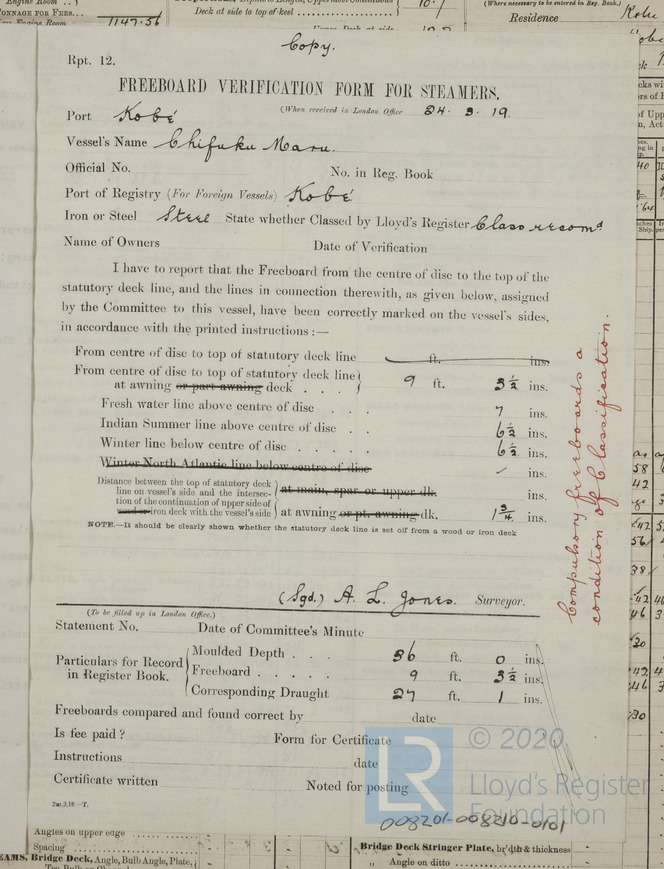 Engine Room
TONNAGE FOR FEES...
1147.56
Engine Room
Deck at side to top of keel
10.7
(Where necessary to be entered in Reg. Book.)
Residence
Kobe
Copy.
Rpt. 12.
FREEBOARD VERIFICATION FORM FOR STEAMERS.
(When received in London Office 24. 3. 19.
Port Kobé
Vessel's Name Chifuku Maru.
Official No. No. in Reg. Book
Port of Registry (For Foreign Vessels) Kobé
Iron or Steel Steel State whether Classed by Lloyd's Register Class recomd
Name of Owners Date of Verification
I have to report that the Freeboard from the centre of disc to the top of the
statutory deck line, and the lines in connection therewith, as given below, assigned
by the Committee to this vessel, have been correctly marked on the vessel's sides,
in accordance with the printed instructions :—
From centre of disc to top of statutory deck line ft. ins.
From centre of disc to top of statutory deck line
at awning or part awning deck . . . 9 ft. 3½ ins.
Fresh water line above centre of disc . . . 7 ins.
Indian Summer line above centre of disc . . 6½ ins.
Winter line below centre of disc . . . . 6½ ins.
Winter North Atlantic line below centre of disc ✓ ins.
Distance between the top of statutory deck
line on vessel's side and the intersec-
tion of the continuation of upper side of
wood or iron deck with the vessel's side
at main, spar or upper dk. ins.
at awning or pt. awning dk. 1¾ ins.
NOTE.—It should be clearly shown whether the statutory deck line is set off from a wood or iron deck
Compulsory freeboards a
condition of Classification.
(Sgd.) A. L. Jones. Surveyor.
(To be filled up in London Office.)
Statement No. Date of Committee's Minute
Particulars for Record
in Register Book.
Moulded Depth . . . 36 ft. 0 ins.
Freeboard . . . . . 9 ft. 3½ ins.
Corresponding Draught 27 ft. 1 ins.
Freeboards compared and found correct by date
Is fee paid ? Form for Certificate
Instructions date
Certificate written Noted for posting
LR
© 2020
Lloyd's Register
Foundation
008201-008210-0101
Angles on upper edge
Spacing
EAMS, Bridge Deck, Angle, Bulb Angle, Plate,
Bridge Deck Stringer Plate, br'dth & thickness
„ Angle on ditto